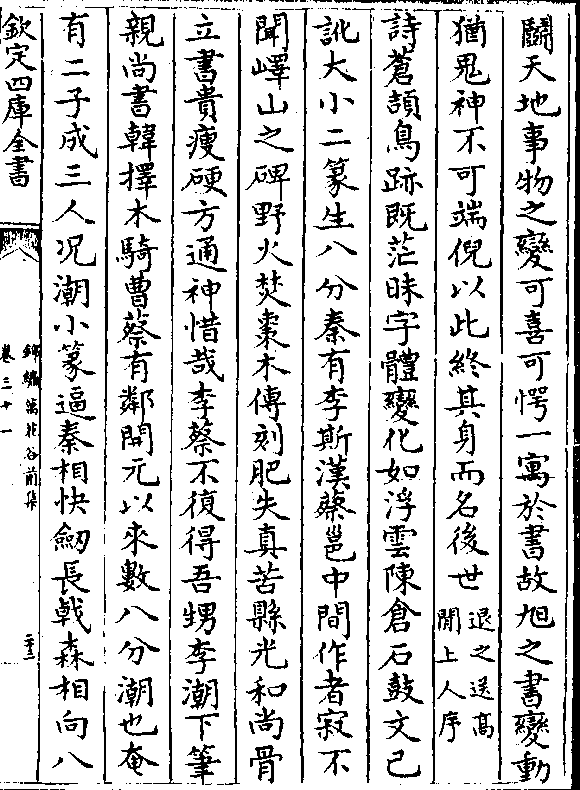 鬬天地事物之變可喜可愕一寓於書故旭之書變動
猶鬼神不可端倪以此終其身而名後世退之送髙
閒上人序
詩蒼頡鳥跡既茫昧字體變化如浮雲陳倉石鼓文已
訛大小二篆生八分秦有李斯漢蔡邕中間作者寂不
聞嶧山之碑野火焚棗木傳刻肥失真苦縣光和尚骨
立書貴瘦硬方通神惜哉李蔡不復得吾甥李潮下筆
親尚書韓擇木騎曹蔡有鄰開元以來數八分潮也奄
有二子成三人况潮小篆逼秦相快劒長戟森相向八
欽定四庫全書
錦繡萬花谷前集
卷三十一
二十三